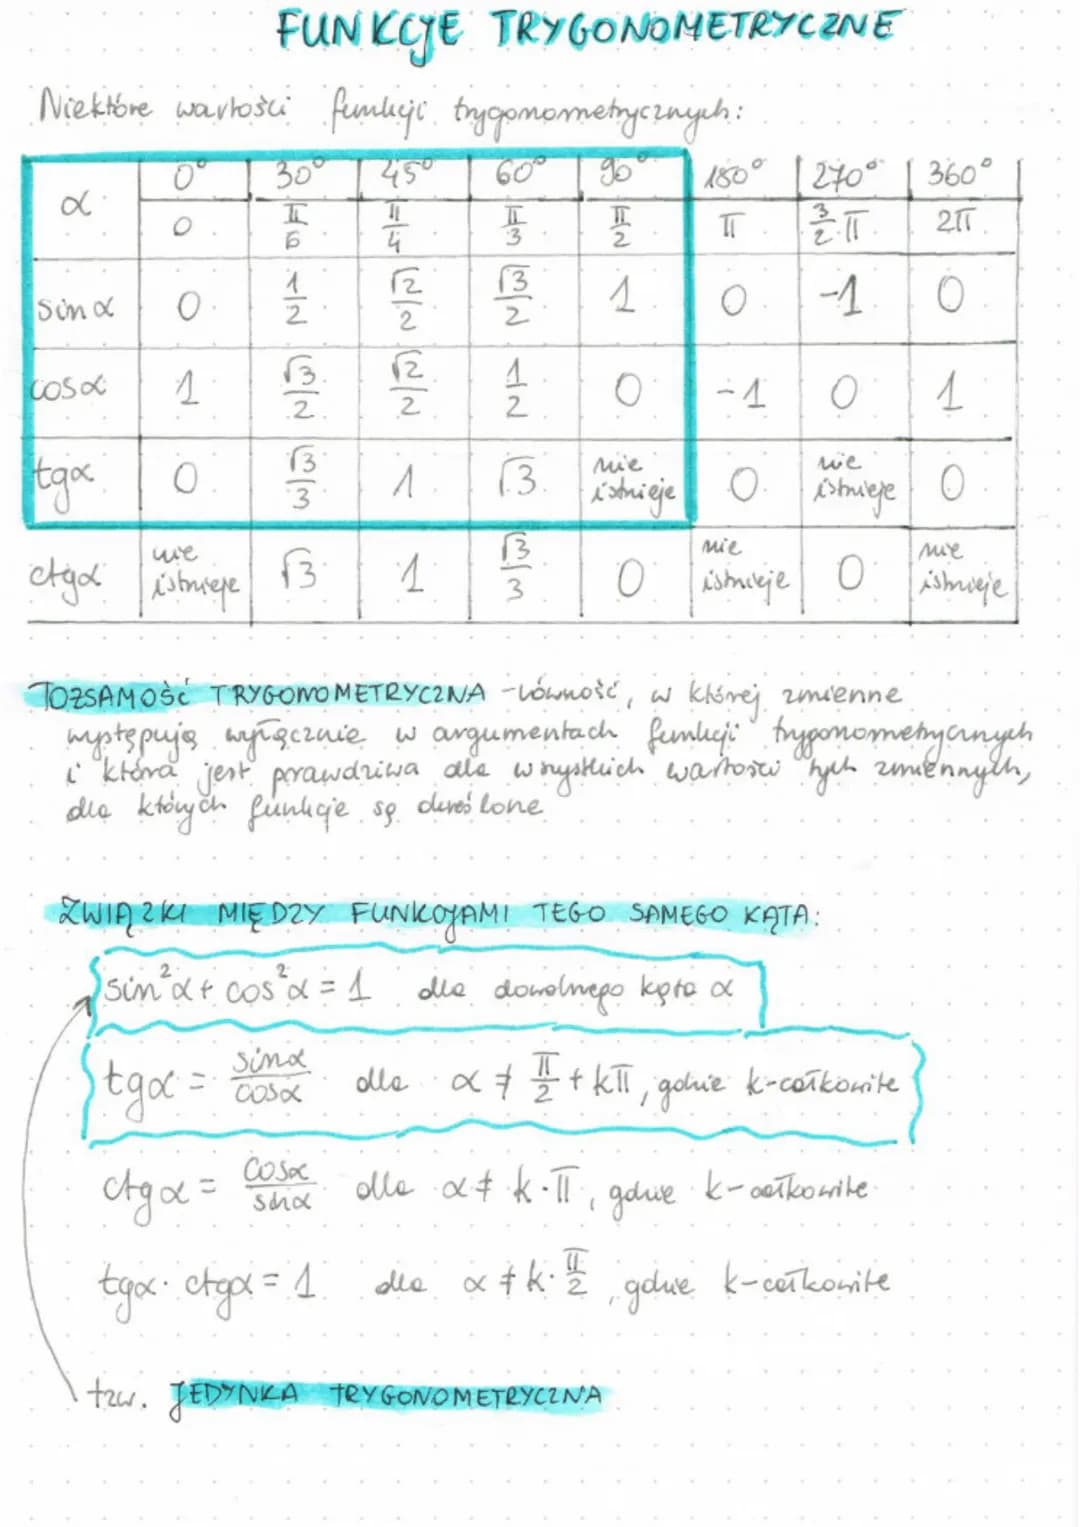 FUNKCJE TRYGONOMETRYCZNE
Niektóre wartości funkcji trygonometrycznych:
α 0° 30° 45° 60° 90° 180° 270° 360°
0 π/6 π/4 π/3 π/2 π 3/2 π 2π
sin α 0 1/2 √2/2 √3/2 1 0 -1 0
cos α 1 √3/2 √2/2 1/2 0 -1 0 1
tg α 0 √3/3 1 √3 nie istnieje 0 nie istnieje 0
ctg α nie istnieje √3 1 √3/3 0 nie istnieje 0 nie istnieje
TOŻSAMOŚĆ TRYGONOMETRYCZNA - równość, w której zmienne
występują wyłącznie w argumentach funkcji trygonometrycznych
i która jest prawdziwa dla wszystkich wartości tych zmiennych,
dla których funkcje są określone
ZWIĄZKI MIĘDZY FUNKCJAMI TEGO SAMEGO KĄTA:
sin²α + cos²α = 1 dla dowolnego kąta α
tgα = sinα/cosα dla α ≠ π/2 + kπ, gdzie k-całkowite
ctgα = cosα/sinα dla α ≠ k·π, gdzie k-całkowite
tgα · ctgα = 1 dla α ≠ k·π/2, gdzie k-całkowite
tzw. JEDYNKA TRYGONOMETRYCZNA